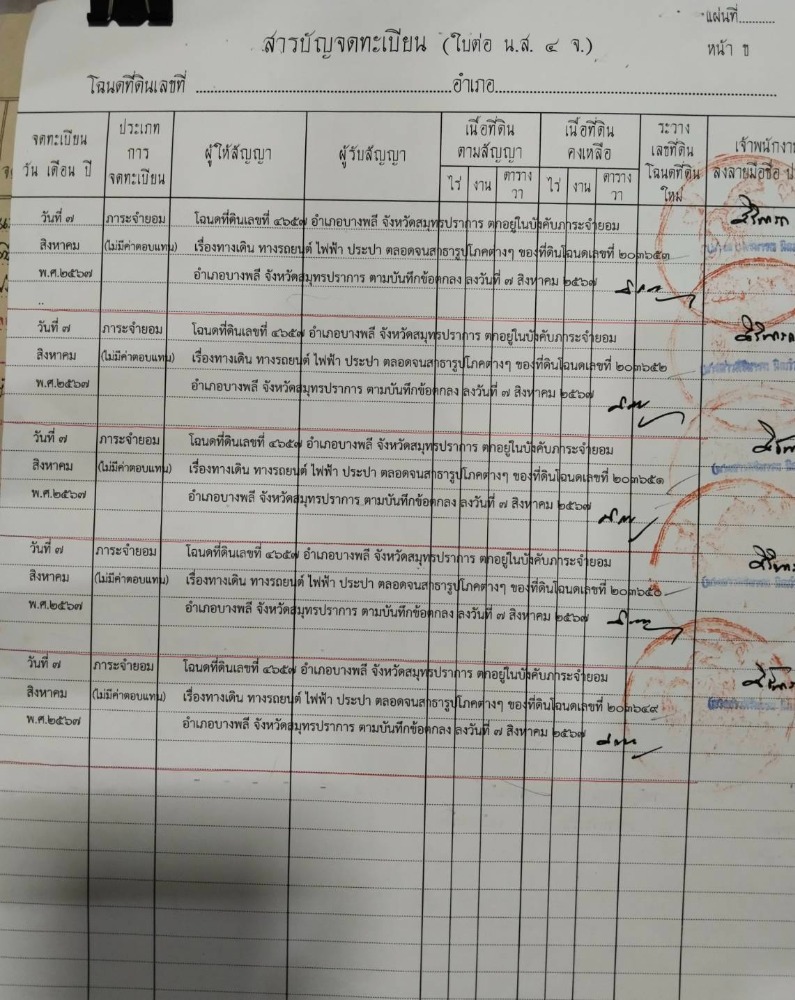 แผ่นที่..........
สารบัญจดทะเบียน (ใบต่อ น.ส. ๔ จ.)
หน้า ข
โฉนดที่ดินเลขที่ ..........อำเภอ..........
จดทะเบียน วัน เดือน ปี
ประเภท การ จดทะเบียน
ผู้ให้สัญญา
ผู้รับสัญญา
เนื้อที่ดิน ตามสัญญา
ไร่ งาน ตาราง วา
เนื้อที่ดิน คงเหลือ
ไร่ งาน ตาราง วา
ระวาง เลขที่ดิน โฉนดที่ดิน ใหม่
เจ้าพนักงา
ลงลายมือชื่อ ป
วันที่ ๗ ภาระจำยอม โฉนดที่ดินเลขที่ ๔๖๕๗ อำเภอบางพลี จังหวัดสมุทรปราการ ตกอยู่ในบังคับภาระจำยอม
สิงหาคม (ไม่มีค่าตอบแทน) เรื่องทางเดิน ทางรถยนต์ ไฟฟ้า ประปา ตลอดจนสาธารูปโภคต่างๆ ของที่ดินโฉนดเลขที่ ๒๐๓๖๕๓
พ.ศ.๒๕๖๗ อำเภอบางพลี จังหวัดสมุทรปราการ ตามบันทึกข้อตกลง ลงวันที่ ๗ สิงหาคม ๒๕๖๗
..
วันที่ ๗ ภาระจำยอม โฉนดที่ดินเลขที่ ๔๖๕๗ อำเภอบางพลี จังหวัดสมุทรปราการ ตกอยู่ในบังคับภาระจำยอม
สิงหาคม (ไม่มีค่าตอบแทน) เรื่องทางเดิน ทางรถยนต์ ไฟฟ้า ประปา ตลอดจนสาธารูปโภคต่างๆ ของที่ดินโฉนดเลขที่ ๒๐๓๖๕๒
พ.ศ.๒๕๖๗ อำเภอบางพลี จังหวัดสมุทรปราการ ตามบันทึกข้อตกลง ลงวันที่ ๗ สิงหาคม ๒๕๖๗
วันที่ ๗ ภาระจำยอม โฉนดที่ดินเลขที่ ๔๖๕๗ อำเภอบางพลี จังหวัดสมุทรปราการ ตกอยู่ในบังคับภาระจำยอม
สิงหาคม (ไม่มีค่าตอบแทน) เรื่องทางเดิน ทางรถยนต์ ไฟฟ้า ประปา ตลอดจนสาธารูปโภคต่างๆ ของที่ดินโฉนดเลขที่ ๒๐๓๖๕๑
พ.ศ.๒๕๖๗ อำเภอบางพลี จังหวัดสมุทรปราการ ตามบันทึกข้อตกลง ลงวันที่ ๗ สิงหาคม ๒๕๖๗
วันที่ ๗ ภาระจำยอม โฉนดที่ดินเลขที่ ๔๖๕๗ อำเภอบางพลี จังหวัดสมุทรปราการ ตกอยู่ในบังคับภาระจำยอม
สิงหาคม (ไม่มีค่าตอบแทน) เรื่องทางเดิน ทางรถยนต์ ไฟฟ้า ประปา ตลอดจนสาธารูปโภคต่างๆ ของที่ดินโฉนดเลขที่ ๒๐๓๖๕๐
พ.ศ.๒๕๖๗ อำเภอบางพลี จังหวัดสมุทรปราการ ตามบันทึกข้อตกลง ลงวันที่ ๗ สิงหาคม ๒๕๖๗
วันที่ ๗ ภาระจำยอม โฉนดที่ดินเลขที่ ๔๖๕๗ อำเภอบางพลี จังหวัดสมุทรปราการ ตกอยู่ในบังคับภาระจำยอม
สิงหาคม (ไม่มีค่าตอบแทน) เรื่องทางเดิน ทางรถยนต์ ไฟฟ้า ประปา ตลอดจนสาธารูปโภคต่างๆ ของที่ดินโฉนดเลขที่ ๒๐๓๖๔๙
พ.ศ.๒๕๖๗ อำเภอบางพลี จังหวัดสมุทรปราการ ตามบันทึกข้อตกลง ลงวันที่ ๗ สิงหาคม ๒๕๖๗